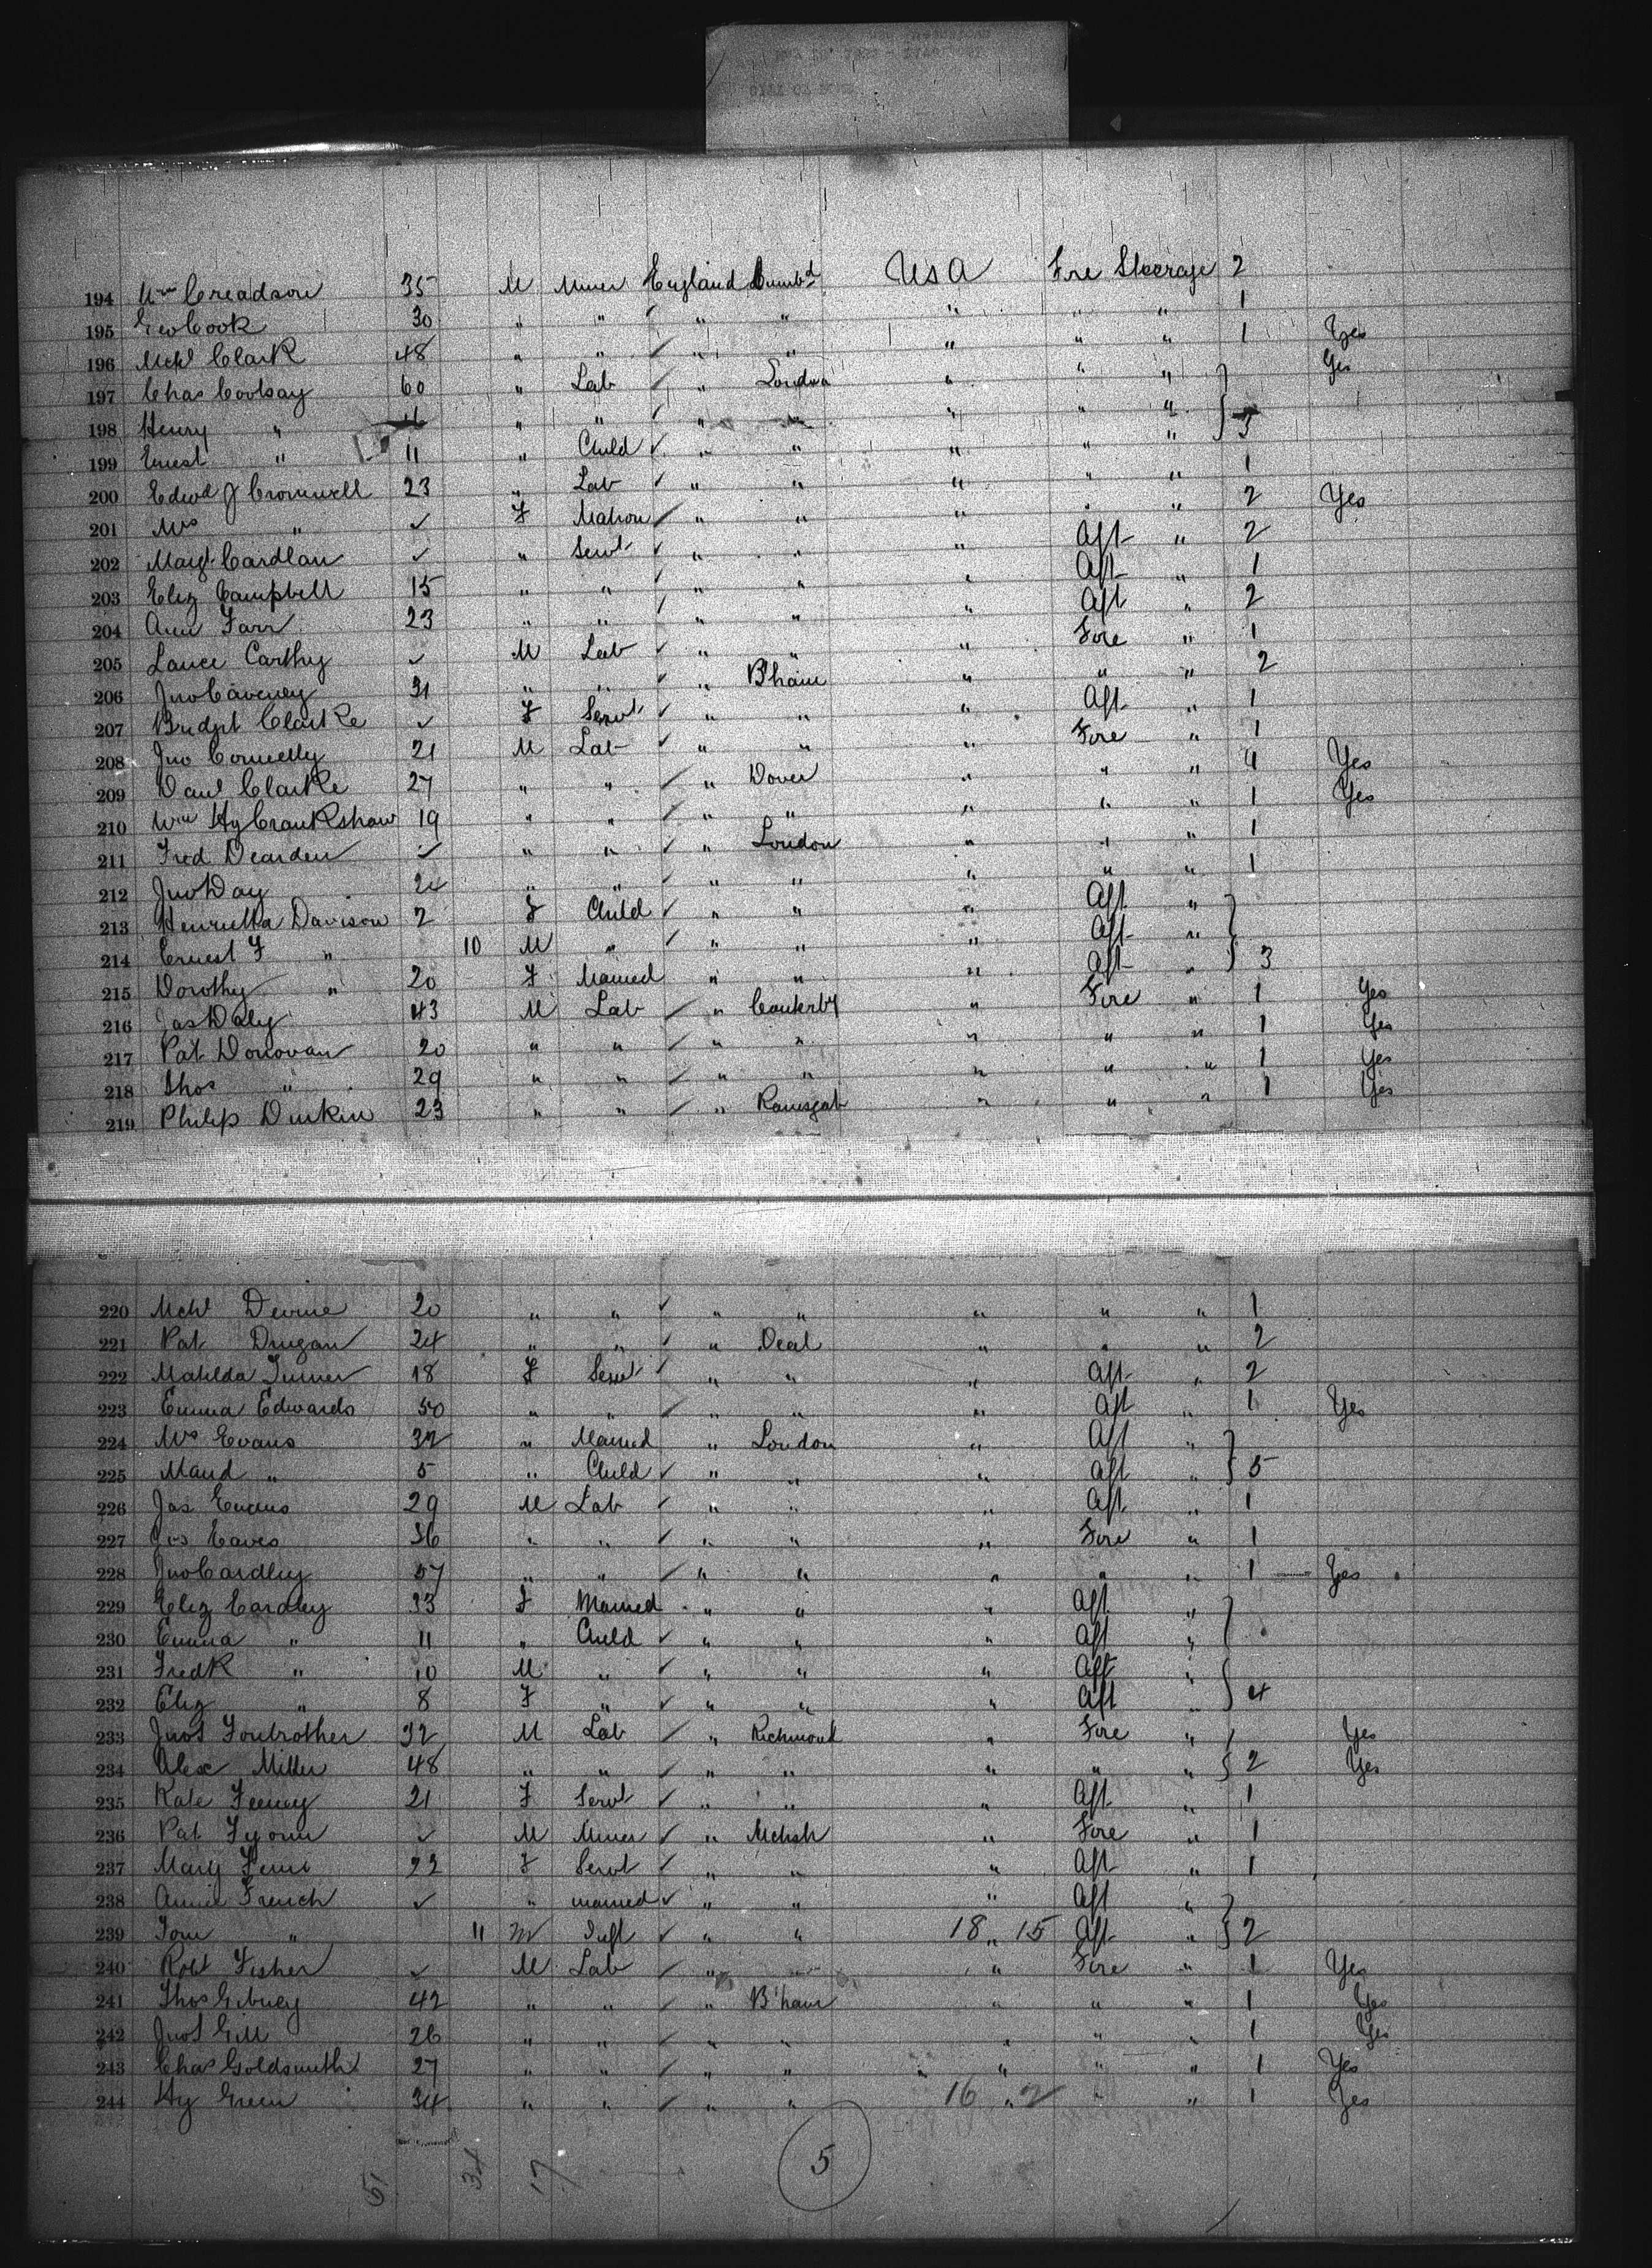 194 Wm Creadson 35 M Miner England Cumbd USA Fre Steerage 2
195 Geo Cook 30 " " ✓ " " " " " 1
196 Mchl Clark 48 " " ✓ " " " " " 1 Yes
197 Chas 60 " Lab ✓ " London " " " Yes
198 Henry " " " ✓ " " " " " } 3
199 Ernest " 11 " Child ✓ " " " " "
200 Edwd J Cromwell 23 " Lab ✓ " " " " " 1
201 Mrs " ✓ F Matron ✓ " " " " " 2 Yes
202 Margt Cardlan ✓ " Servt ✓ " " " Aft " 2
203 Eliz Campbell 15 " " " " " Aft " 1
204 Ann Farr 23 " " ✓ " " " Aft " 2
205 Lance Carthy ✓ M Lab ✓ " " " Fore " 1
206 Jno Caveney 31 " " ✓ " B'ham " " " 2
207 Bridget Clarke ✓ F Servt ✓ " " " Aft " 1
208 Jno Connelly 21 M Lab ✓ " " " Fore " 1
209 Danl Clarke 27 " " ✓ " Dover " " " 4 Yes
210 Wm Hy Crankshaw 19 " " ✓ " " " " " 1 Yes
211 Fred Dearden ✓ " " ✓ " London " " " 1
212 Jno Day 24 " " ✓ " " " " " 1
213 Henrietta Davison 2 F Child ✓ " " " Aft " }
214 Ernest F " 10 M " ✓ " " " Aft "
215 Dorothy " 20 F Married " " " Aft " } 3
216 Jas Daly 43 M Lab ✓ " Canterby " Fore " 1 Yes
217 Pat Donovan 20 " " ✓ " " " " " 1 Yes
218 Thos " 29 " " ✓ " " " " " 1 Yes
219 Philip Durkin 23 " " ✓ " Ramsgat " " " 1 Yes
220 Mchl Devine 20 " " ✓ " " " " " 1
221 Pat Drugan 24 " " ✓ " Deal " " " 2
222 Matilda Turner 18 F Servt ✓ " " " Aft " 2
223 Emma Edwards 50 " " ✓ " " " Aft " 1 Yes
224 Mrs Evans 32 " Married " London " Aft " }
225 Maud " 5 " Child ✓ " " " Aft " } 5
226 Jas 29 M Lab ✓ " " " Aft " 1
227 Jas Eaves 36 " " ✓ " " " Fore " 1
228 Jno Cardley 57 " " ✓ " " " " " 1 Yes
229 Eliz Cardley 33 F Married " " " Aft " }
230 Emma " 11 " Child ✓ " " " Aft "
231 Fredk " 10 M " ✓ " " " Aft "
232 Eliz " 8 F " ✓ " " " Aft " } 4
233 Jno S 32 M Lab ✓ " Richmond " Fore " } Yes
234 Alex Miller 48 " " ✓ " " " " " } 2 Yes
235 Kate Feeney 21 F Servt ✓ " " " Aft " 1
236 Pat ✓ M Miner ✓ " " Fore " 1
237 Mary 22 F Servt ✓ " " " Aft " 1
238 Annie French ✓ " married ✓ " " " Aft " }
239 Tom " 11 M Inft ✓ " " 18 " 15 Aft " } 2
240 Robt Fisher ✓ M Lab ✓ " " " Fore " 1 Yes
241 Thos Gibney 42 " " ✓ " B'ham " " " 1 Yes
242 Jno S Gill 26 " " ✓ " " " " " 1 Yes
243 Chas Goldsmith 27 " " ✓ " " " " " 1 Yes
244 Hy Green 34 " " ✓ " " 16 " 2 " " 1 Yes
51 34 17 5